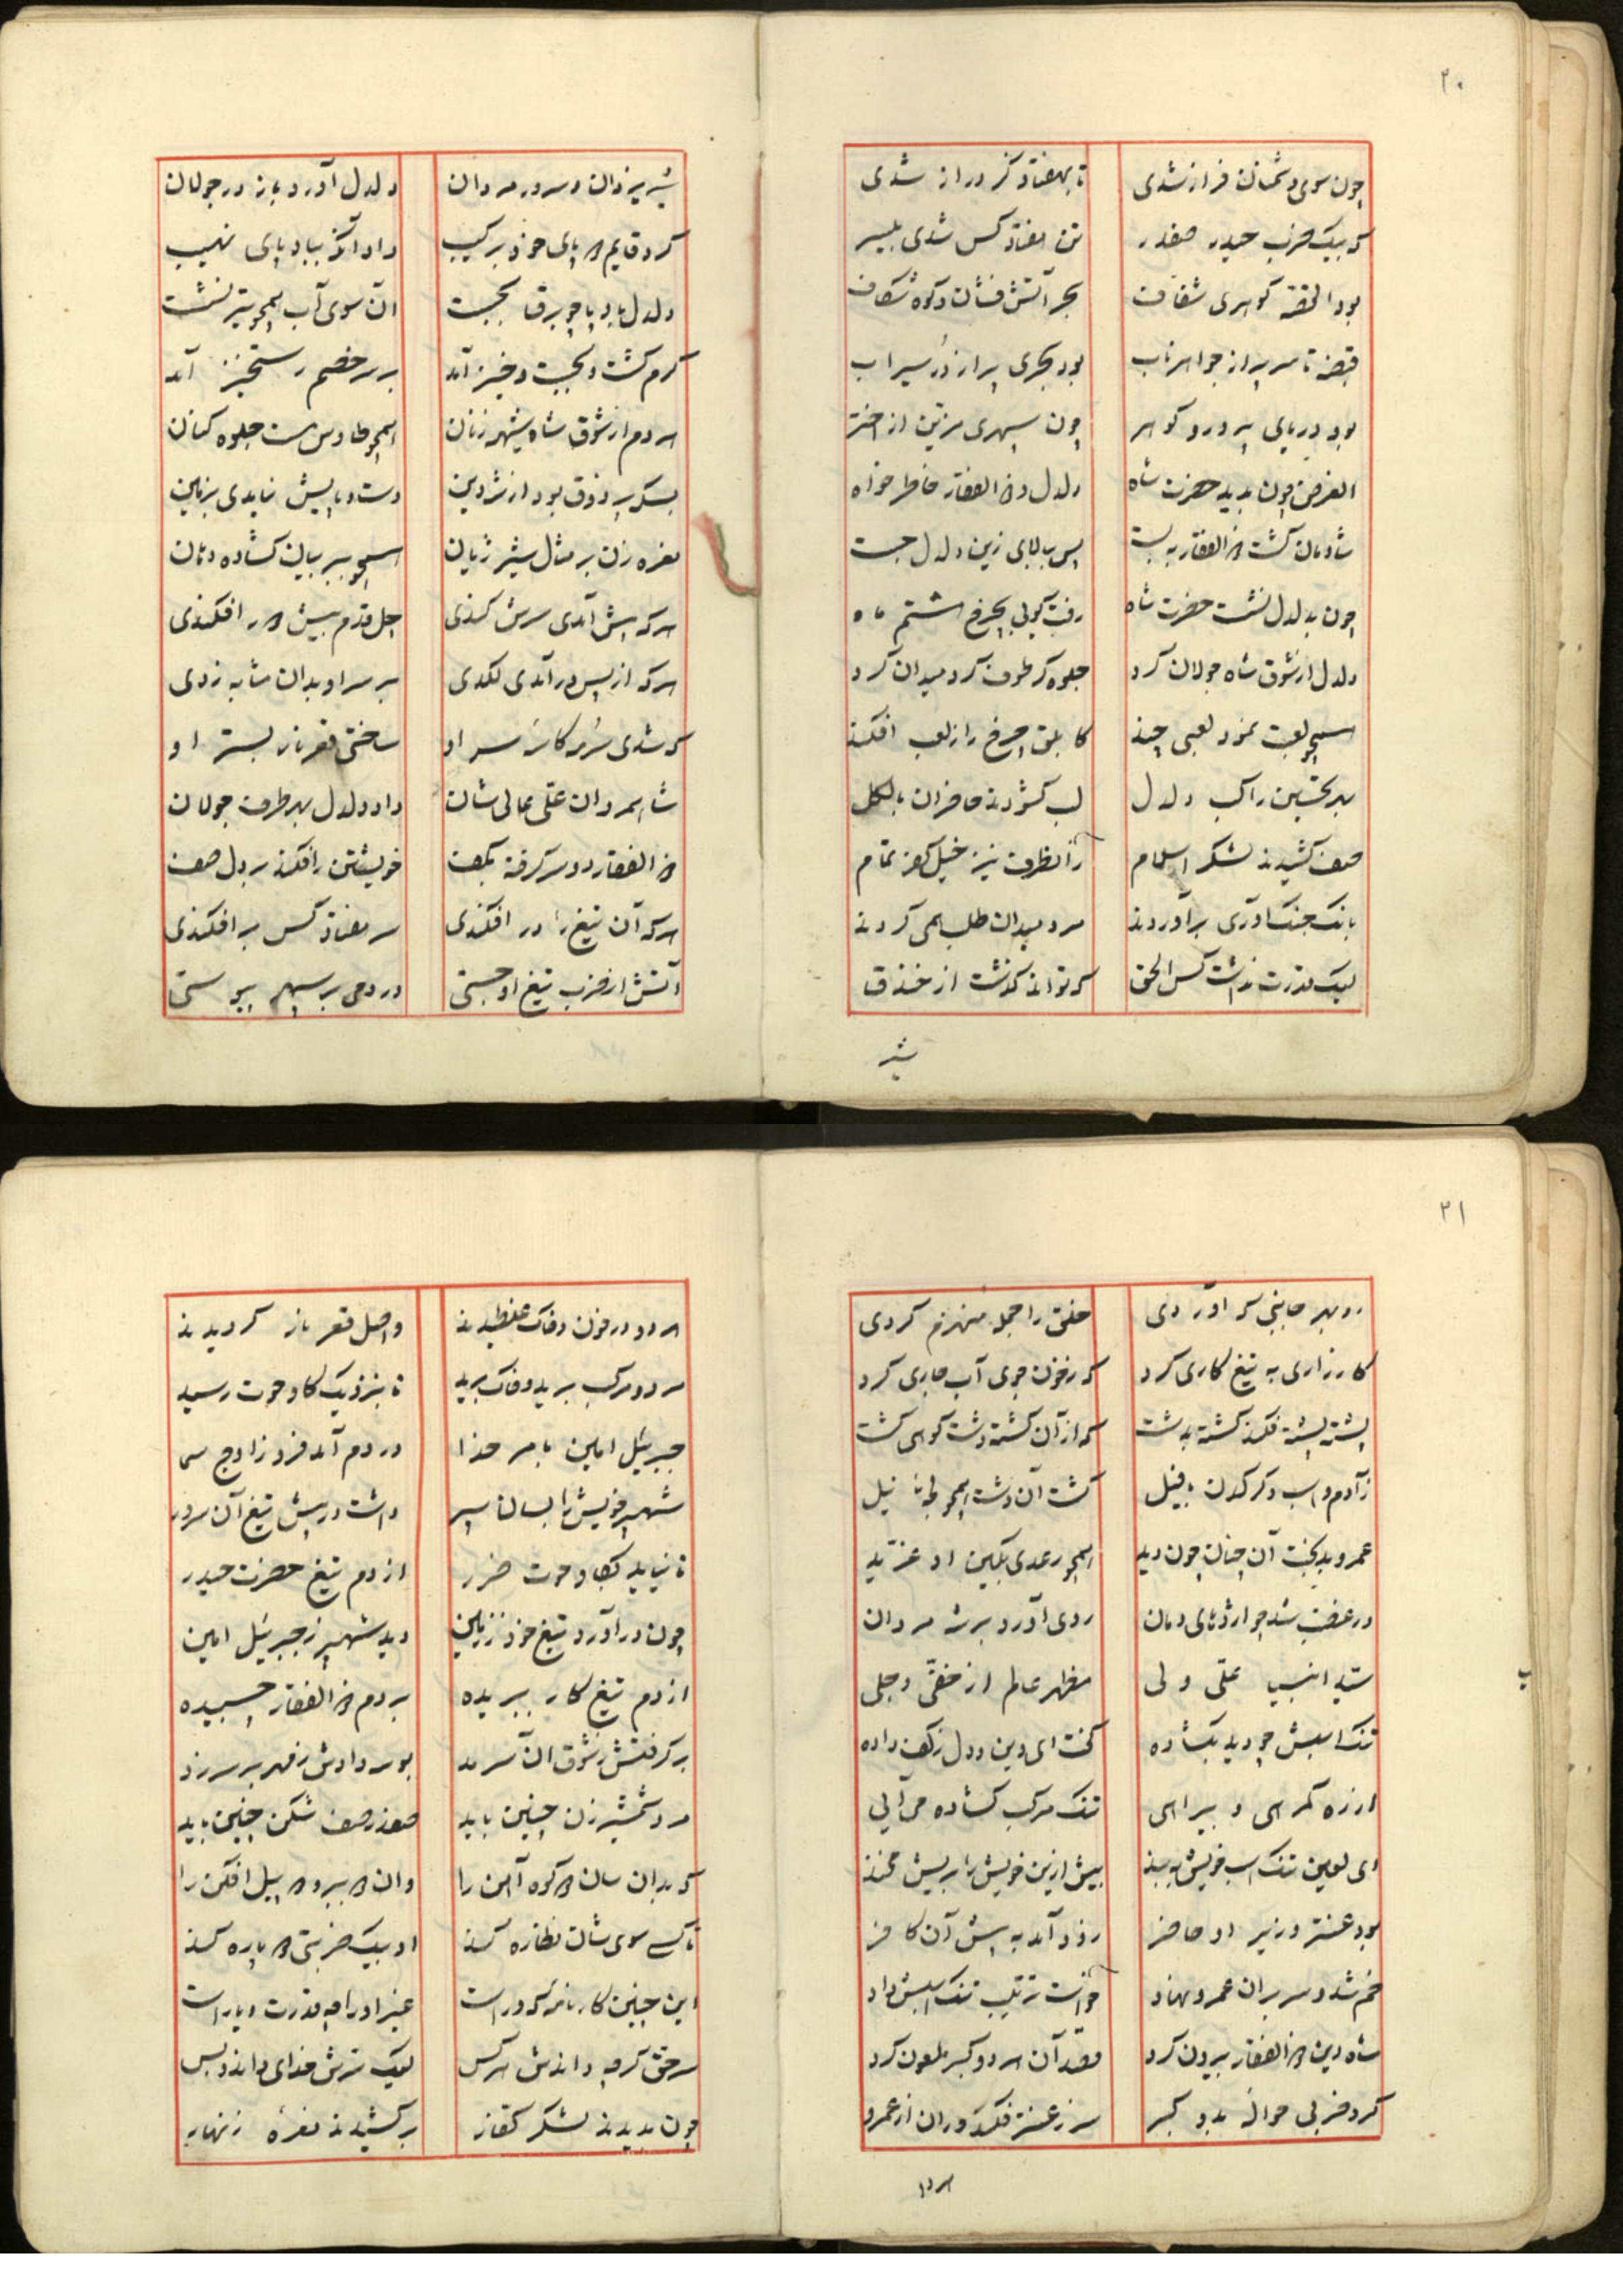 ۲۰
چون سوی دشمنان فراز شدی تا بهفتاد گز دراز شدی
که بیک ضرب حیدر صفدر تن هفتاد کس شدی بیسر
بود القصه کوهری شفاف بحر آتش فشان و کوه شکاف
قبضه تا سر پر از جواهر ناب بود بحری پر از در سیراب
بود دریای پر در و کوهر چون سپهری مزین از اختر
الغرض چون بدید حضرت شاه دلدل و ذالفقار خاطر خواه
شادمان کشت و ذالفقار به بست پس ببالای زین دلدل جست
چون بدلدل نشست حضرت شاه رفت کویی بچرخ هشتم ماه
دلدل از شوق شاه جولان کرد جلوه کر طوف کرد میدان کرد
همچو لعبت نمود لعبی چند کابلق چرخ را زلعب افکند
بهر تحسین راکب دلدل لب کشودند حاضران بالکل
صف کشیدند لشکر اسلام زآنطرف نیز خیل کفر تمام
بانک جنک آوری برآوردند مرد میدان طلب همی کردند
لیک قدرت نداشت کس الحق که تواند کذشت از خندق
شیر
شیر یزدان و سرور مردان دلدل آورد باز در جولان
کرد قایم دو پای خود برکیب داد آنکه بباد پای نهیب
دلدل باد پا چو برق بجست ان سوی آب همچو تیر نشست
کرم کشت و بجست و خیز آمد بر سر خصم رستخیز آمد
هر دم از شوق شاه شیهه زنان همچو طاوس مست جلوه کنان
بسکه پر ذوق بود از شه دین دست و پایش نیامدی بزمین
نعره زن بر مثل شیر ژیان همچو ببر بیان کشاده دهان
هرکه پیش آمدی سرش کندی اجل قدم پیش در افکندی
هرکه از پس درآمدی لکدی بر سر او بدان مثابه زدی
که شدی سرمه کاسه سر او ساختی قعر نار بستر او
شاه مردان علی عالی شان داد دلدل بهر طرف جولان
ذالفقار دو سر کرفته بکف خویشتن را فکند بر دل صف
هرکه آن تیغ را در افکندی سر هفتاد کس بر افکندی
آتش از ضرب تیغ او جستی در دمی بر سپهر پیوستی
۲۱
رو بهر جانبی که آوردی خلق را جمله منهزم کردی
کارزاری به تیغ کاری کرد که زخون جوی آب جاری کرد
پشته پشته فکند کشته بدشت که از آن کشته دشت کوهی کشت
زآدم و اسب و کرکدن با فیل کشت آن دشت همچو لجه نیل
عمرو بدبخت آن چنان چون دید همچو رعدی بکین او غرید
در غضب شد چو اژدهای دمان روی آورد بر شه مردان
سید انبیا علی ولی مظهر عالم از خفی و جلی
تنک اسبش چو دید بکشاده کفت ای دین و دل زکف داده
از ره کمرهی و بیراهی تنک مرکب کشاده می آیی
ای لعین تنک اسب خویش به بند بیش ازین خویش را بریش مخند
بود عنتر وزیر او حاضر زود آمد به پیش آن کافر
خم شد و سر بران عمرو نهاد خواست ترتیب تنک اسبش داد
شاه دین ذالفقار بیرون کرد قصد آن هر دو کبر ملعون کرد
کرد ضربی حواله بدو کبر سر زعنتر فکند و ران از عمرو
هر دو
هر دو در خون و خاک غلطیدند واصل قعر نار کردیدند
مرد و مرکب برید و خاک برید تا بنزدیک کاو حوت رسید
جبرئیل امین بامر خدا در دم آمد فرود زاوج سما
شهپر خویش را بسان سپر داشت در پیش تیغ آن سرور
تا نیاید بکاو حوت ضرر از دم تیغ حضرت حیدر
چون درآورد تیغ خود ززمین دید شهپر زجبرئیل امین
از دم تیغ کار ببریده بر دم ذالفقار چسپیده
برکرفتش زشوق ان سرمد بوسه دادش زمهر بر سر زد
مرد شمشیر زن چنین باید صفدر صف شکن چنین باید
که بدان سان دو کوه آهن را وان دو ببر و دو پیل افکن را
تا کسی سوی شان نظاره کند او بیک ضربتی دو پاره کند
این چنین کارنامه که وراست غیر او را چه قدرت و یاراست
سر حق کرچه داندش هرکس لیک سرش خدای داند و بس
چون بدیدند لشکر کفار برکشیدند نعره زنهار